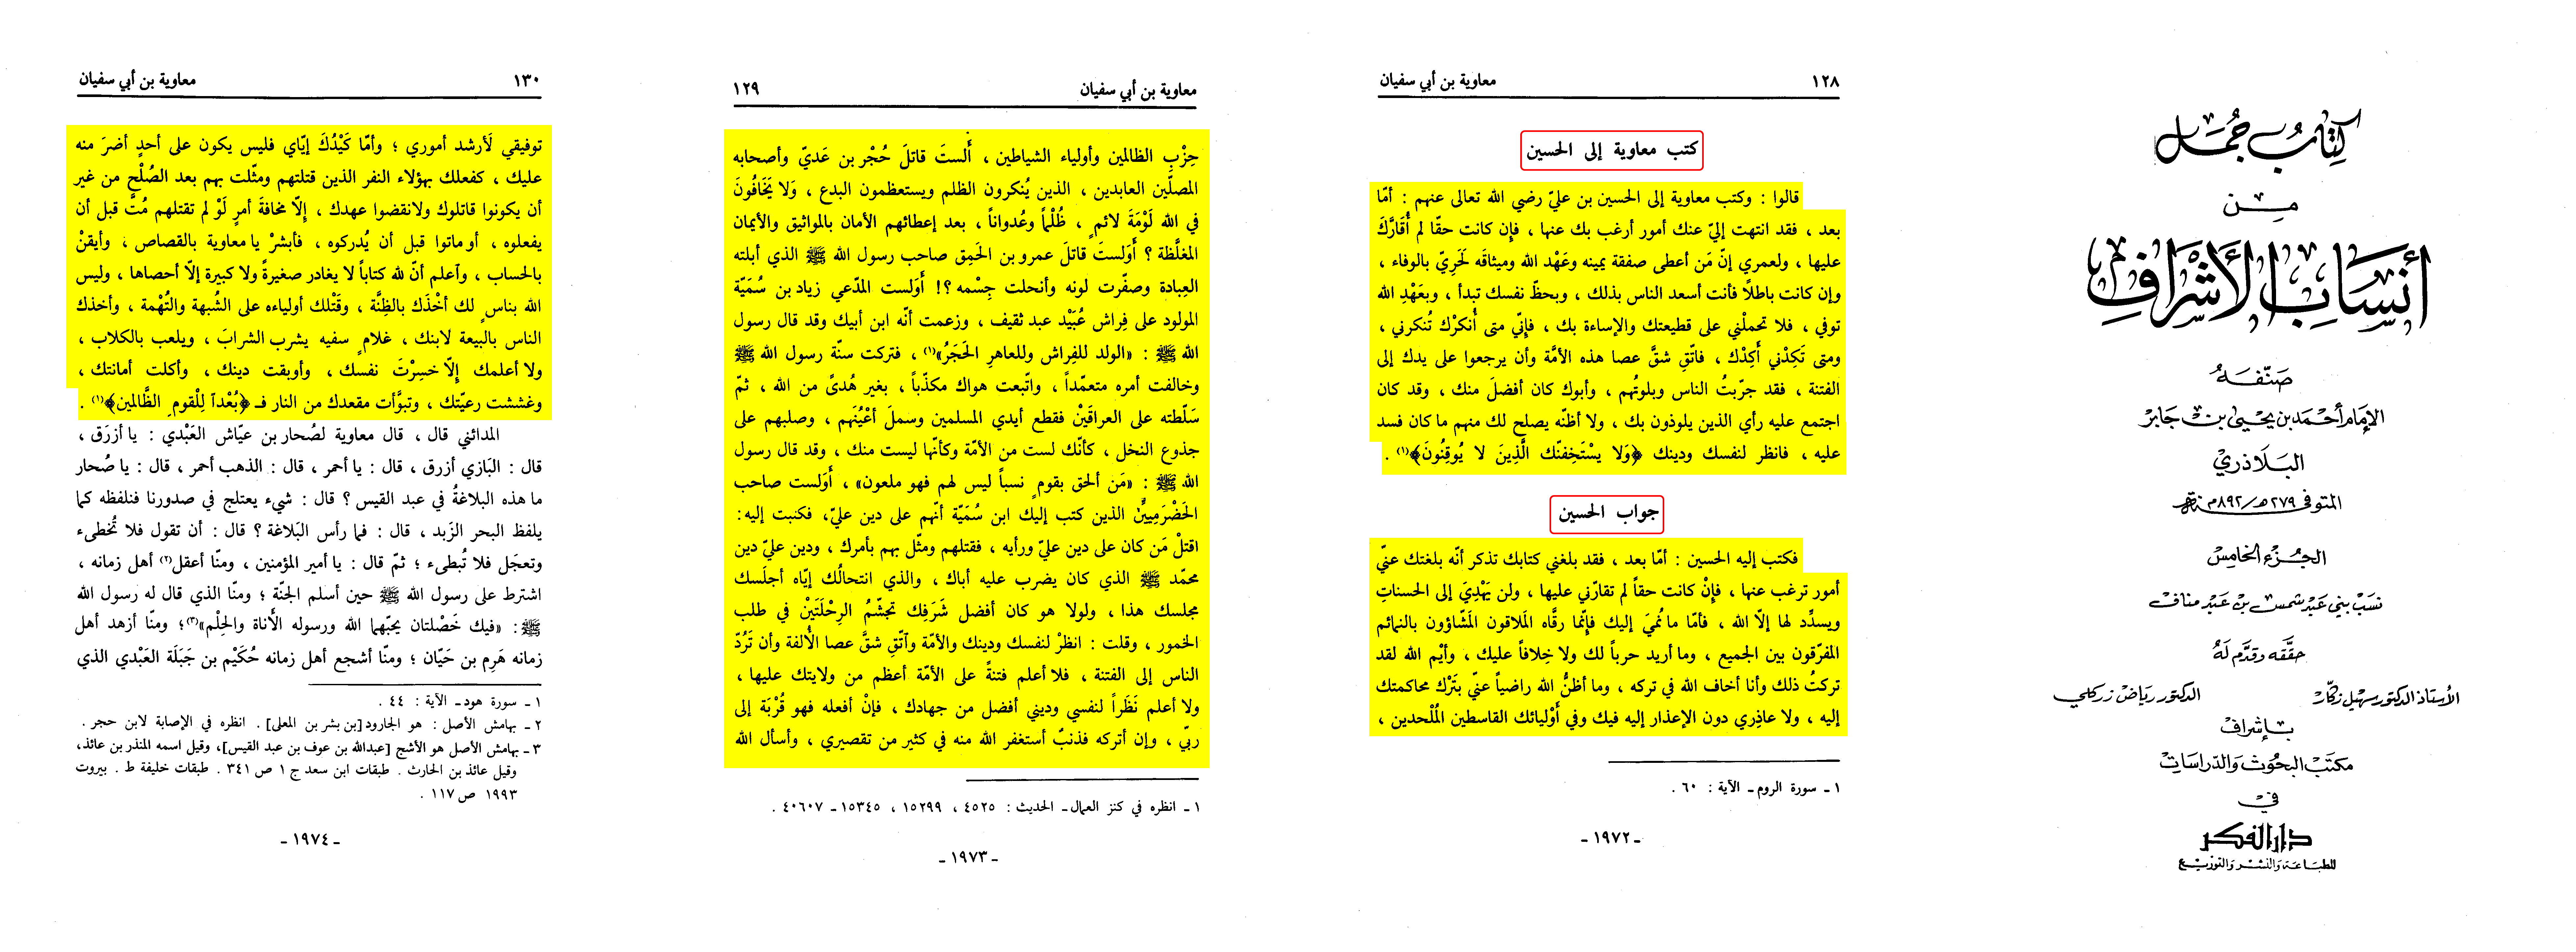 كتاب جمل
من
أنساب الأشراف
صنّفه
الإمام أحمد بن يحيى بن جابر
البلاذري
المتوفى ٢٧٩هـ/٨٩٢م
الجزء الخامس
نسب بني عبد شمس بن عبد مناف
حقّقه وقدّم له
الأستاذ الدكتور سهيل زكّار الدكتور رياض زركلي
بإشراف
مكتب البحوث والدراسات
في
دار الفكر
للطباعة والنشر والتوزيع
١٢٨ معاوية بن أبي سفيان
كتب معاوية إلى الحسين
قالوا : وكتب معاوية إلى الحسين بن عليّ رضي الله تعالى عنهم : أمّا
بعد ، فقد انتهت إليّ عنك أمور أرغب بك عنها ، فإن كانت حقّا لم أُقَارَّكَ
عليها ، ولعمري إنّ مَن أعطى صفقة يمينه وعَهْد الله وميثاقه لَحَرِيّ بالوفاء ،
وإن كانت باطلاً فأنت أسعد الناس بذلك ، وبحظّ نفسك تبدأ ، وبعَهْدِ الله
توفي ، فلا تحملْني على قطيعتك والإساءة بك ، فإنّي متى أُنكرْك تُنكرني ،
ومتى تَكِدْني أَكِدْك ، فاتّقِ شقَّ عصا هذه الأمّة وأن يرجعوا على يدك إلى
الفتنة ، فقد جرّبتُ الناس وبلوتُهم ، وأبوك كان أفضلَ منك ، وقد كان
اجتمع عليه رأي الذين يلوذون بك ، ولا أظنّه يصلح لك منهم ما كان فسد
عليه ، فانظر لنفسك ودينك ﴿وَلا يسْتَخِفنّك الَّذِينَ لا يُوقِنُونَ﴾⁽¹⁾ .
جواب الحسين
فكتب إليه الحسين : أمّا بعد ، فقد بلغني كتابك تذكر أنّه بلغتك عنيّ
أمور ترغب عنها ، فإنْ كانت حقاً لم تقارّني عليها ، ولن يَهْدِيَ إلى الحسناتِ
ويسدِّد لها إلّا الله ، فأمّا ما نُميَ إليك فإنّما رقَّاه المَلاقون المَشّاؤون بالنمائم
المفرّقون بين الجميع ، وما أريد حرباً لك ولا خِلافاً عليك ، وأيْم الله لقد
تركتُ ذلك وأنا أخاف الله في تركه ، وما أظنُّ الله راضياً عنيّ بتَرْك محاكمتك
إليه ، ولا عاذِري دون الإعذار إليه فيك وفي أوْليائك القاسطين المُلْحدين ،
١ ـ سورة الروم ـ الآية : ٦٠ .
ـ ١٩٧٢ ـ
معاوية بن أبي سفيان ١٢٩
حِزْبِ الظالمين وأولياء الشياطين ، ألستَ قاتلَ حُجْر بن عَديّ وأصحابه
المصلّين العابدين ، الذين يُنكرون الظلم ويستعظمون البدع ، وَلا يَخَافُونَ
في الله لَوْمَةَ لائمٍ ، ظُلْماً وعُدواناً ، بعد إعطائهم الأمان بالمواثيق والأيمان
المغلَّظة ؟ أوَلستَ قاتلَ عمرو بن الحَمِق صاحب رسول الله ﷺ الذي أبلته
العِبادة وصفّرت لونه وأنحلت جِسْمه ؟! أوَلست المدّعي زياد بن سُمَيّة
المولود على فِراش عُبَيْد عبد ثقيف ، وزعمت أنّه ابن أبيك وقد قال رسول
الله ﷺ : «الولد للفِراش وللعاهرِ الحَجَرُ»⁽¹⁾ ، فتركت سنّة رسول الله ﷺ
وخالفت أمره متعمّداً ، واتّبعت هواك مكذّباً ، بغير هُدىً من الله ، ثمّ
سَلّطته على العراقَيْن فقطع أيدي المسلمين وسملَ أعْيُنَهم ، وصلبهم على
جذوع النخل ، كأنّك لست من الأمّة وكأنّها ليست منك ، وقد قال رسول
الله ﷺ : «مَن ألحق بقومٍ نسباً ليس لهم فهو ملعون» ، أوَلست صاحب
الحَضْرَمِيينّ الذين كتب إليك ابن سُمَيّة أنّهم على دين عليّ، فكتبت إليه :
اقتلْ مَن كان على دين عليّ ورأيه ، فقتلهم ومثّل بهم بأمرك ، ودين عليّ دين
محمّد ﷺ الذي كان يضرب عليه أباك ، والذي انتحالُك إيّاه أجلَسك
مجلسك هذا ، ولولا هو كان أفضل شَرَفِك تجشّمُ الرِحْلَتَيْن في طلب
الخمور ، وقلت : انظرْ لنفسك ودينك والأمّة واتّقِ شقَّ عصا الألفة وأن تَرُدّ
الناس إلى الفتنة ، فلا أعلم فتنةً على الأمّة أعظم من ولايتك عليها ،
ولا أعلم نَظَراً لنفسي وديني أفضل من جهادك ، فإنْ أفعله فهو قُرْبَة إلى
ربّي ، وإن أتركه فذنبٌ أستغفر الله منه في كثير من تقصيري ، وأسأل الله
١ ـ انظره في كنز العمال ـ الحديث : ٤٥٢٥ ، ١٥٢٩٩ ، ١٥٣٤٥ ـ ٤٠٦٠٧ .
ـ ١٩٧٣ ـ
١٣٠ معاوية بن أبي سفيان
توفيقي لَأرشد أموري ؛ وأمّا كَيْدُكَ إيّاي فليس يكون على أحدٍ أضرَ منه
عليك ، كفعلك بهؤلاء النفر الذين قتلتهم ومثّلت بهم بعد الصُلْح من غير
أن يكونوا قاتلوك ولانقضوا عهدك ، إلّا مخافةَ أمرٍ لَوْ لم تقتلهم مُتَّ قبل أن
يفعلوه ، أو ماتوا قبل أن يُدركوه ، فأبشرْ يا معاوية بالقصاص ، وأيقنْ
بالحساب ، وأعلم أنّ لله كتاباً لا يغادر صغيرةً ولا كبيرة إلّا أحصاها ، وليس
الله بناسٍ لك أخْذَك بالظِنَّة ، وقَتْلك أولياءه على الشُبهة والتُهْمة ، وأخذك
الناس بالبيعة لابنك ، غلامٍ سفيه يشرب الشرابَ ، ويلعب بالكلاب ،
ولا أعلمك إلّا خسِرْتَ نفسك ، وأوبقت دينك ، وأكلت أمانتك ،
وغششت رعيّتك ، وتبوَّأت مقعدك من النار فـ ﴿بُعْداً لِلْقوم الظَّالمين﴾⁽¹⁾ .
المدائني قال ، قال معاوية لصُحار بن عيّاش العَبْدي : يا أزرَق ،
قال : البَازي أزرق ، قال : يا أحمر ، قال : الذهب أحمر ، قال : يا صُحار
ما هذه البلاغةُ في عبد القيس ؟ قال : شيء يعتلج في صدورنا فنلفظه كما
يلفظ البحر الزَبد ، قال : فما رأس البَلاغة ؟ قال : أن تقول فلا تُخطىء
وتعجَل فلا تُبطىء ؛ ثمّ قال : يا أمير المؤمنين ، ومنّا أعقل⁽²⁾ أهل زمانه ،
اشترط على رسول الله ﷺ حين أسلم الجنّة ؛ ومنّا الذي قال له رسول الله
ﷺ : «فيك خَصْلتان يحبّهما الله ورسوله الأناة والحِلْم»⁽³⁾؛ ومنّا أزهد أهل
زمانه هَرِم بن حَيّان ؛ ومنّا أشجع أهل زمانه حُكَيْم بن جَبَلَة العَبْدي الذي
١ ـ سورة هود ـ الآية : ٤٤ .
٢ ـ بهامش الأصل : هو الجارود [بن بشر بن المعلى] . انظره في الإصابة لابن حجر .
٣ ـ بهامش الأصل هو الأشج [عبدالله بن عوف بن عبد القيس]، وقيل اسمه المنذر بن عائذ،
وقيل عائذ بن الحارث . طبقات ابن سعد ج ١ ص ٣٤١ . طبقات خليفة ط . بيروت
١٩٩٣ ص ١١٧ .
ـ ١٩٧٤ ـ